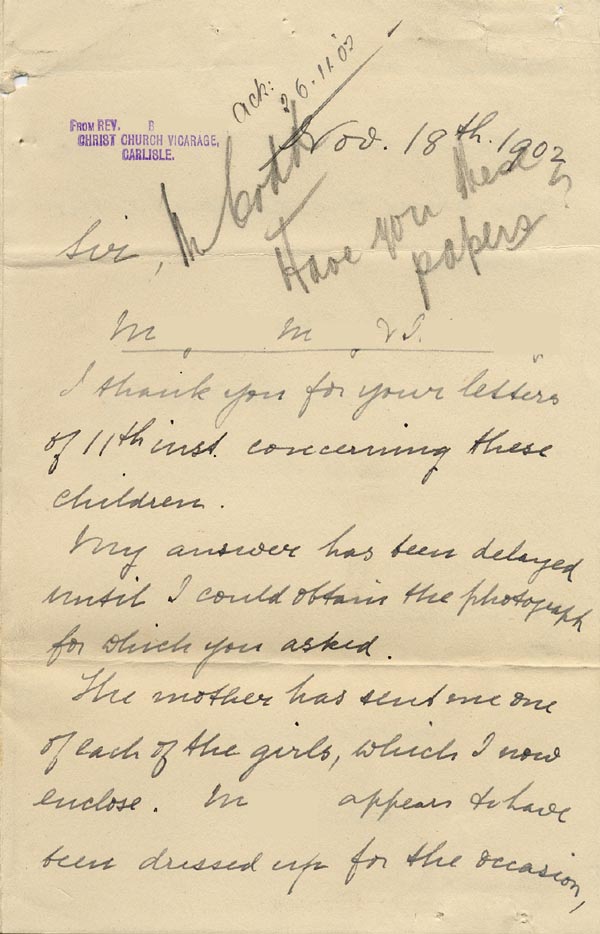 ack: 26.11.02
FROM REV. B
CHRIST CHURCH VICARAGE,
CARLISLE.
Nov. 18th. 1902
Sir,
Mr
Have you these
papers?
M , M , V I.
I thank you for your letters
of 11th inst. concerning these
children.
My answer has been delayed
until I could obtain the photograph
for which you asked.
The mother has sent me one
of each of the girls, which I now
enclose. M appears to have
been dressed up for the occasion,